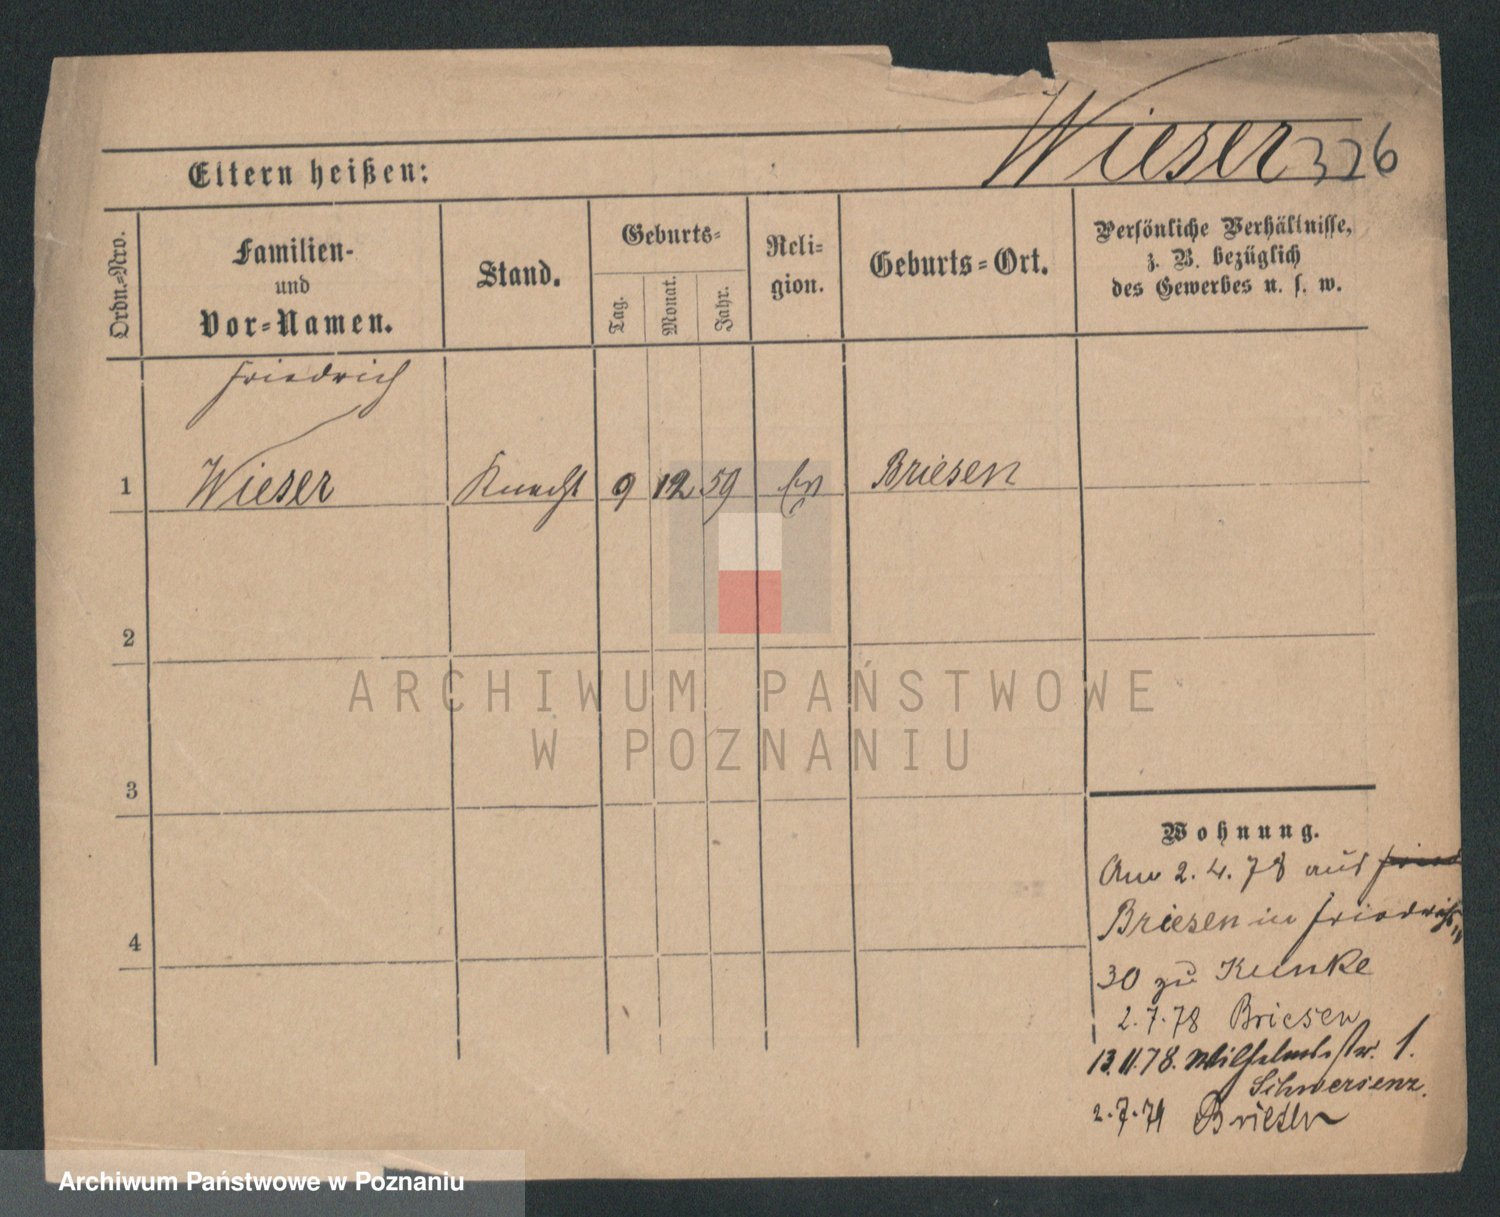 Wieser 326
Eltern heißen:
Ordn.-Nro.
Familien-
und
Vor-Namen.
Stand.
Geburts-
Tag.
Monat.
Jahr.
Reli-
gion.
Geburts-Ort.
Persönliche Verhältnisse,
z. B. bezüglich
des Gewerbes u. s. w.
Friedrich
1 Wieser Knecht 9 12 59 Ev Briesen
2
3
4
ARCHIWUM PAŃSTWOWE
W POZNANIU
Wohnung.
Am 2.4.78 aus Fried
Briesen in Friedrichstr
30 zu Kunke
2.7.78 Briesen
13.11.78. Wilhelmstr. 1.
Schwersenz.
2.7.79 Briesen
Archiwum Państwowe w Poznaniu